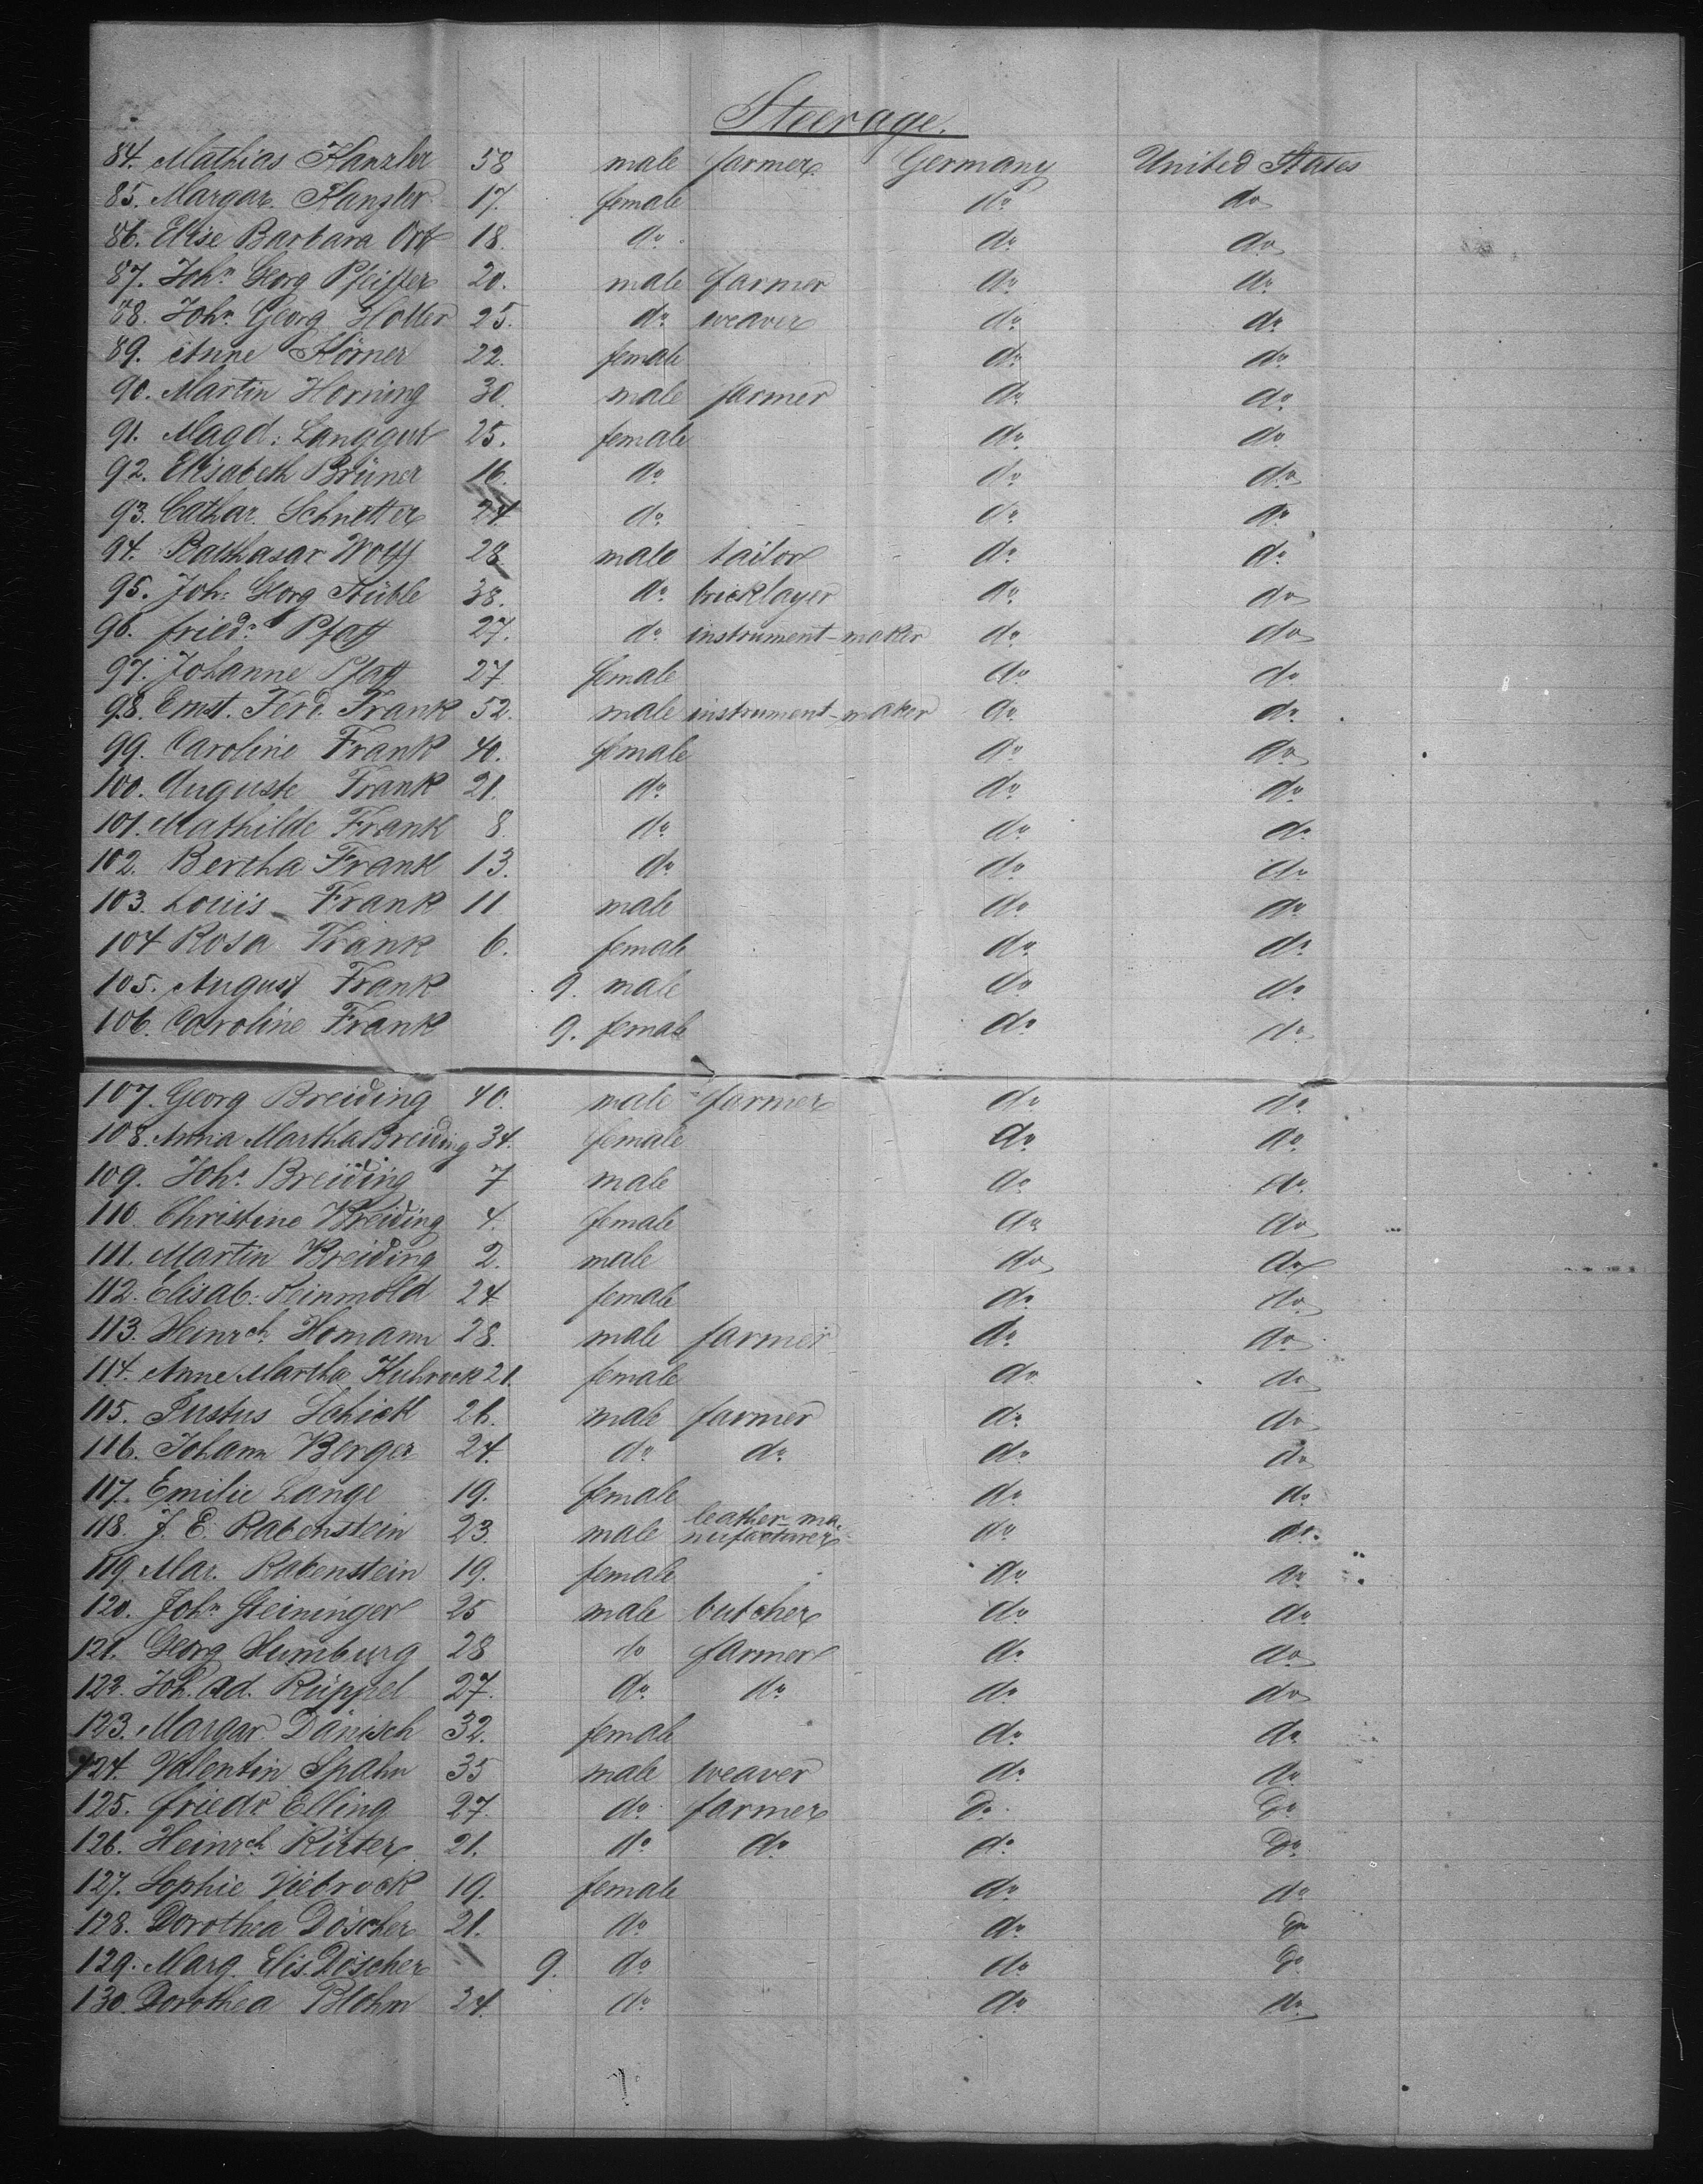 Steerage.
84. Mathias Kanzler 58 male farmer Germany United States
85. Margar. Kanzler 17. female do do
86. Elise Barbara Ort 18. do do do
87. John Georg Pfeiffer 20. male farmer do do
88. John Georg Holler 25. do weaver do do
89. Anne Körner 22. female do do
90. Martin Horning 30. male farmer do do
91. Magd: Langgut 25. female do do
92. Elisabeth Brüner 16. do do do
93. Cathar. Schnetter 24 do do do
94. Balthasar Wolff 28 male tailor do do
95. Joh: Georg Stüble 38. do bricklayer do do
96. friedr Pfaff 27. do instrument-maker do do
97. Johanne Pfaff 27 female do do
98. Ernst. Ferd. Frank 52. male instrument-maker do do
99. Caroline Frank 40. female do do
100. Auguste Frank 21. do do do
101. Mathilde Frank 8 do do do
102. Bertha Frank 13. do do do
103. Louis Frank 11 male do do
104 Rosa Frank 6. female do do
105. August Frank 9. male do do
106. Caroline Frank 9. female do do
107. Georg Breiding 40. male farmer do do
108. Anna Martha Breiding 34. female do do
109. Johs Breiding 7 male do do
110 Christine Breiding 4. female do do
111. Martin Breiding 2. male do do
112. Elisab: Reinmold 24 female do do
113. Heinrch Homann 28. male farmer do do
114. Anne Martha 21. female do do
115. Justus Schick 26. male farmer do do
116. Johann Berger 24. do do do do
117. Emilie Lange 19. female do do
118. J. E. Rabenstein 23. male leather-ma-
nufacturer do do
119 Mar. Rabenstein 19. female do do
120. John Steininger 25 male butcher do do
121. Georg Humburg 28 do farmer do do
122. Joh. Ad. Rüppel 27. do do do do
123. Margar. Dänisch 32. female do do
124. Valentin Spahn 35 male weaver do do
125. friedr Elling 27. do farmer do do
126. Heinrch Rüter 21. do do do do
127. Sophie Viebrock 19. female do do
128. Dorothea Döscher 21. do do do
129. Marg. Elis. Döscher 9. do do do
130. Dorothea Blohm 24. do do do